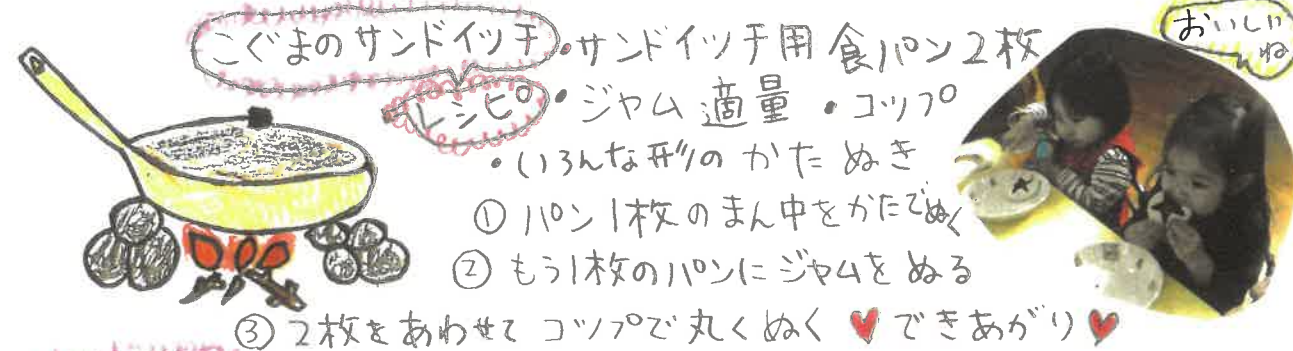 こぐまのサンドイッチ
レシピ
・サンドイッチ用食パン2枚
・ジャム適量 ・コップ
・いろんな形のかたぬき
① パン1枚のまん中をかたでぬく
② もう1枚のパンにジャムをぬる
③ 2枚をあわせてコップで丸くぬく ♥できあがり♥
おいしい
ね